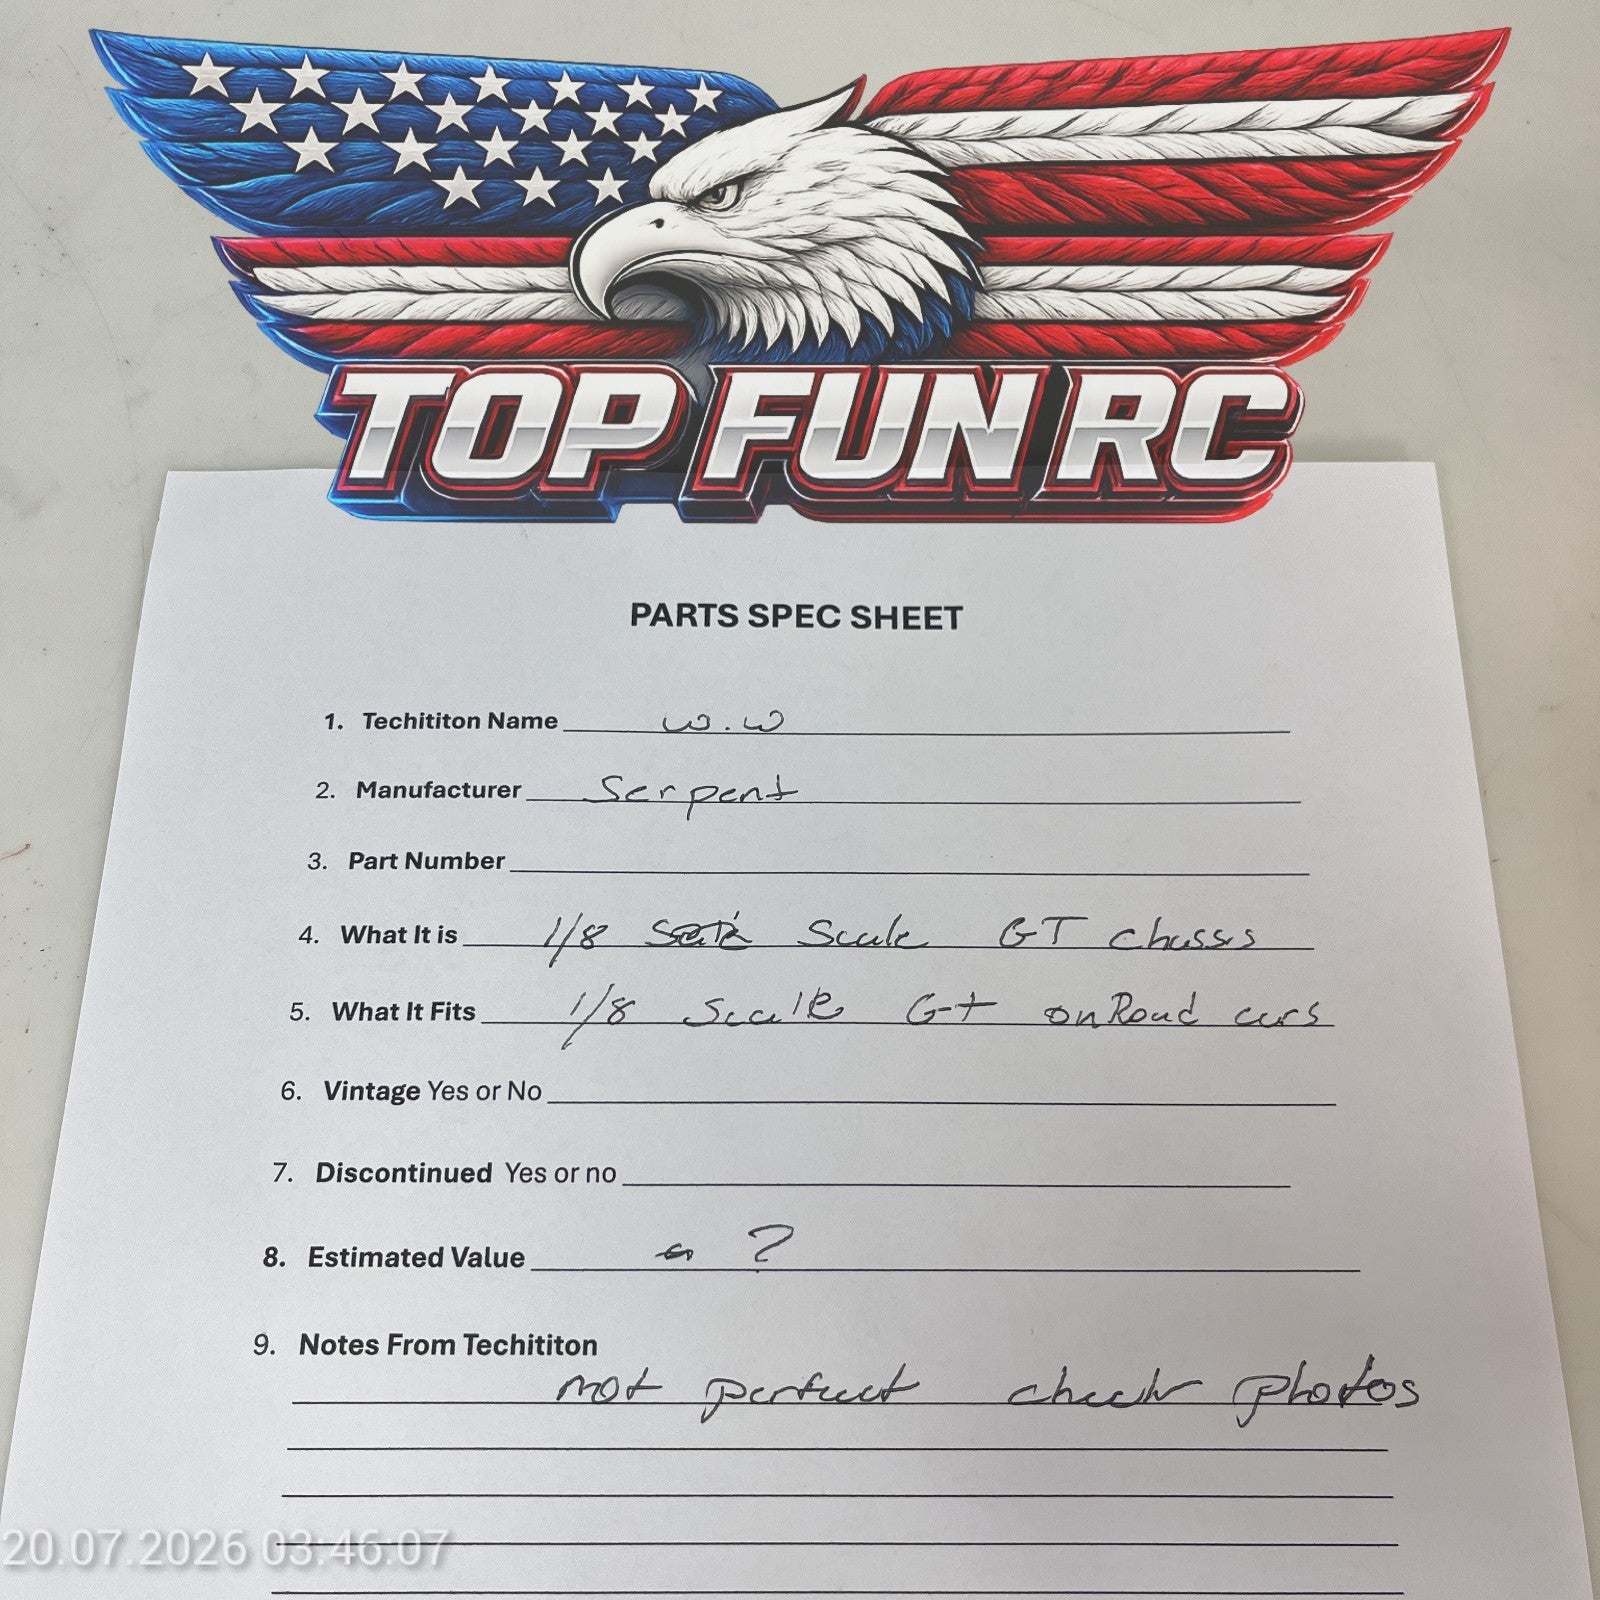 TOP FUN RC
PARTS SPEC SHEET
1. Techititon Name w.w
2. Manufacturer Serpent
3. Part Number
4. What It is 1/8 Scale GT chassis
5. What It Fits 1/8 Scale GT onRoad cars
6. Vintage Yes or No
7. Discontinued Yes or no
8. Estimated Value ?
9. Notes From Techititon
not perfect check photos
20.07.2026 03:46:07